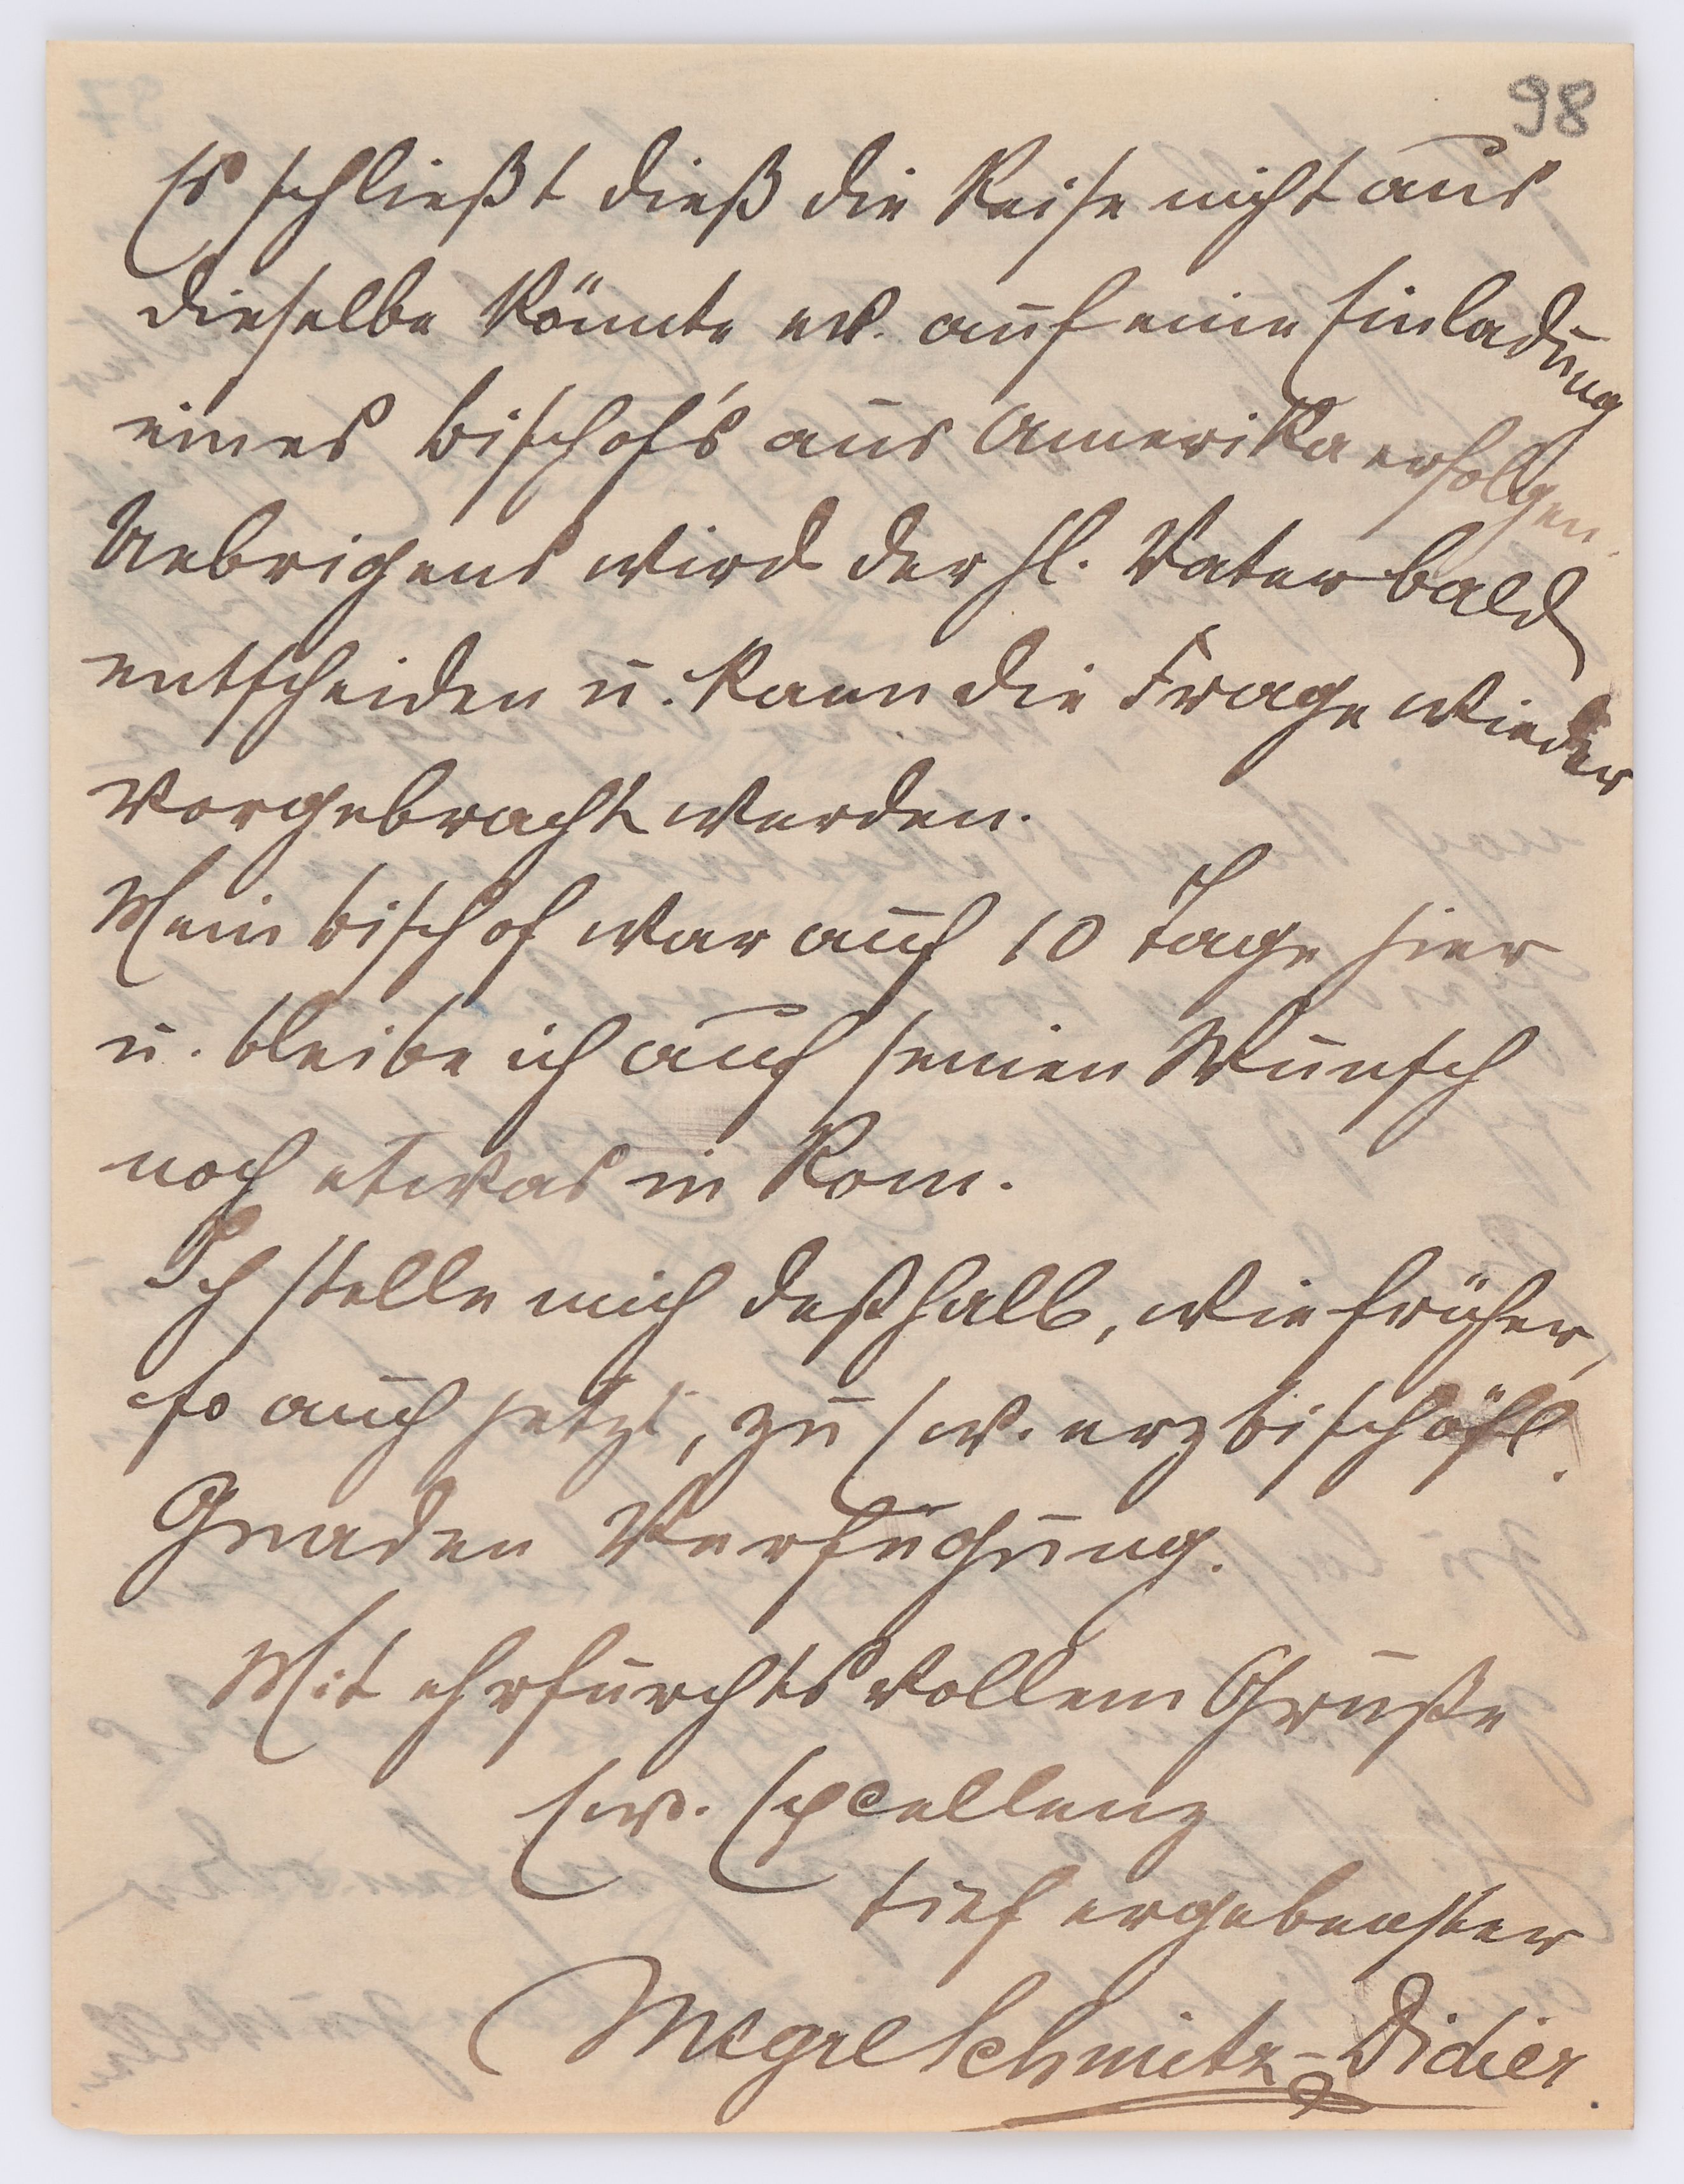 98
Es schließt dieß die Reise nicht aus
dieselbe könnte ev. auf eine Einladung
eines Bischofs aus Amerika erfolgen.
Uebrigens wird der hl. Vater bald
entscheiden u. kann die Frage wieder
vorgebracht werden.
Mein Bischof war auch 10 Tage hier
u. bleibe ich auf seinen Wunsch
noch etwas in Rom.
Ich stelle mich deßhalb, wie früher,
so auch jetzt, zu Ew. erzbischöfl.
Gnaden Verfügung.
Mit ehrfurchtsvollem Gruße
Ew. Excellenz
tief ergebenster
Msgre Schmitz-Didier.